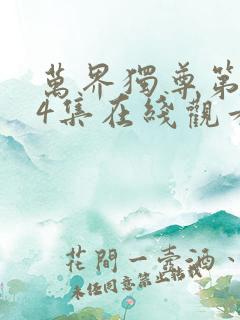 萬界獨尊第
4集在綫觀看
花間一壺酒、
未经同意禁止转载